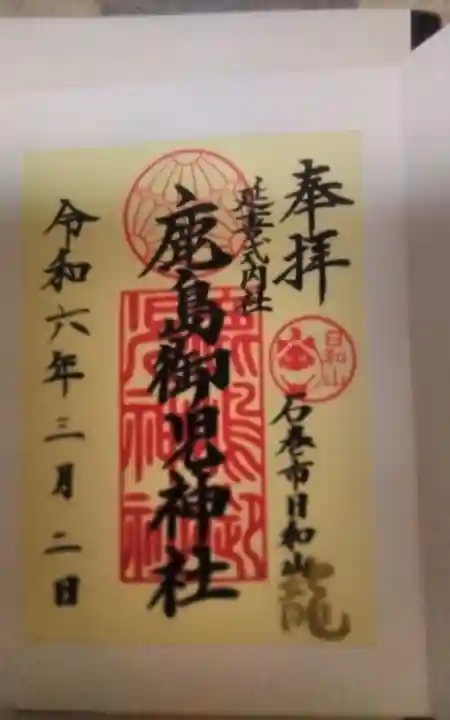 奉拝
日和山
石巻市日和山
龍
延喜式内社
鹿島御児神社
鹿島御児神社
令和六年三月二日